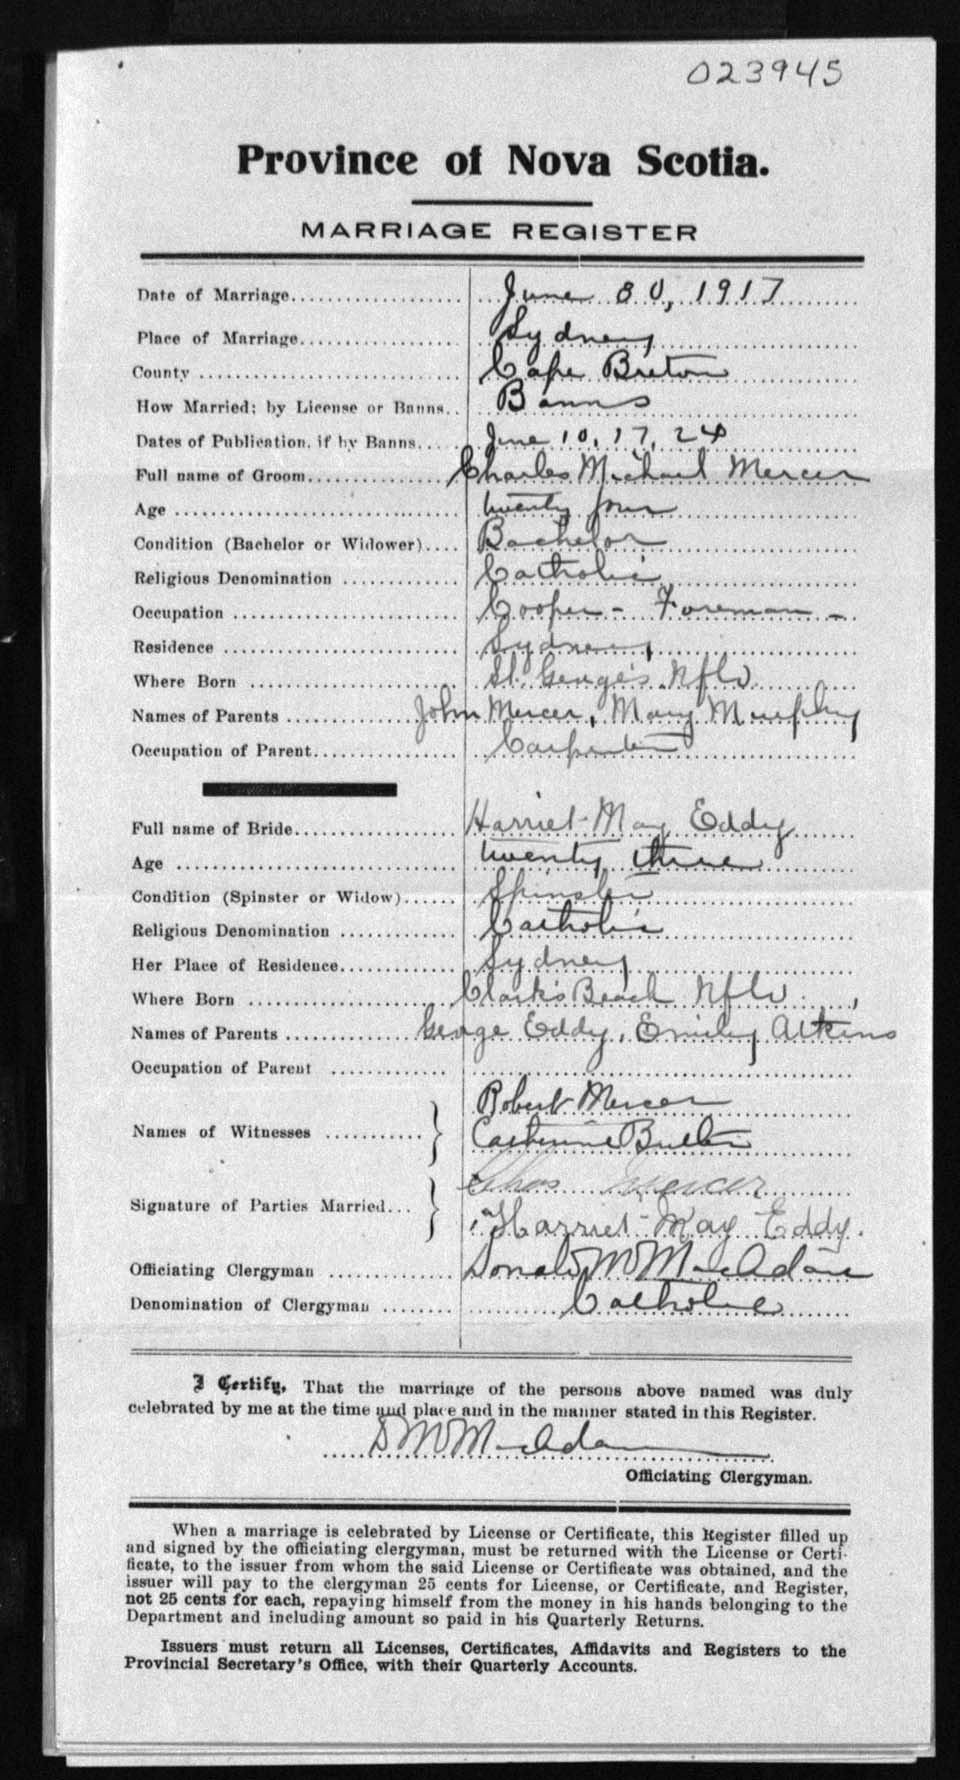 023945
Province of Nova Scotia.
MARRIAGE REGISTER
Date of Marriage.................... June 30, 1917
Place of Marriage................... Sydney
County ............................. Cape Breton
How Married; by License or Banns.. Banns
Dates of Publication, if by Banns..... June 10, 17, 24
Full name of Groom................. Charles Michael Mercer
Age ................................ twenty four
Condition (Bachelor or Widower).... Bachelor
Religious Denomination ............ Catholic
Occupation ......................... Cooper - Foreman -
Residence .......................... Sydney
Where Born ........................ St. George's Nfld
Names of Parents ................. John Mercer, Mary Murphy
Occupation of Parent................ Carpenter
Full name of Bride.................. Harriet May Eddy
Age ................................ twenty three
Condition (Spinster or Widow)...... Spinster
Religious Denomination ............. Catholic
Her Place of Residence............. Sydney
Where Born ........................ Clark's Beach Nfld.
Names of Parents ................. George Eddy, Emily Atkins
Occupation of Parent .............
Robert Mercer
Names of Witnesses ........... Catherine Butler
Chas Mercer
Signature of Parties Married... Harriet May Eddy.
Officiating Clergyman ............. Donald M MacAdam
Denomination of Clergyman ........ Catholic
I Certify, That the marriage of the persons above named was duly
celebrated by me at the time and place and in the manner stated in this Register.
D M MacAdam
Officiating Clergyman.
When a marriage is celebrated by License or Certificate, this Register filled up
and signed by the officiating clergyman, must be returned with the License or Certi-
ficate, to the issuer from whom the said License or Certificate was obtained, and the
issuer will pay to the clergyman 25 cents for License, or Certificate, and Register,
not 25 cents for each, repaying himself from the money in his hands belonging to the
Department and including amount so paid in his Quarterly Returns.
Issuers must return all Licenses, Certificates, Affidavits and Registers to the
Provincial Secretary's Office, with their Quarterly Accounts.